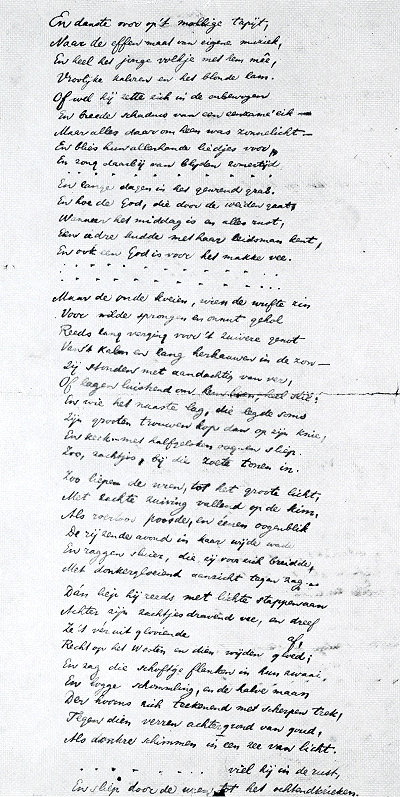 En danste over op 't mollige tapijt,
Naar de effen maat van eigene muziek,
En heel het jonge volkje met hem mêe,
Vroolyke kalveren en het blonde lam.
Of wel hij zette zich in de onbewogen
En breede schaduw van een eenzame eik —
Maar alles daar om heen was zonnelicht —
En blies hun allerhande liedjes voor,
En zong daarbij van blyden zomertijd
. . . . . . . . . .
En lange dagen in het geurend gras.
En hoe de God, die door de weiden gaat,
Wanneer het middag is en alles rust,
Een iedre kudde met haar leidsman kent,
En ook een God is voor het makke vee.
. . . . . . . . . .
. . . . . . . . . .
Maar de oude koeien, wien de wufte zin
Voor wilde sprongen en onnut gehol
Reeds lang verging voor 't zuivere genot
Van st kalm en lang herkauwen in de zon —
Zij stonden met aandachtig van ver,
Of lagen luisterend om heen, stil;
En wie het naaste lag, die legde soms
Zijn grooten trouwen kop dan op zijn knie,
En keek met halfgeloken oogen en sliep
Zoo, zachtjes, bij die zoete tonen in.
Zoo liepen de uren, tot het groote licht,
Met zachte zuiving vallend op de kim,
Als roerloos poosde, en éénen oogenblik
De rijzende avond in haar wijde
En raggen sluier, die zij voor zich breidde,
Met donkergloeiend aanzicht tegen zag.
Dán liep hij reeds met lichte stappen aan
Achter zijn zachtjes dravend vee, en dreef
Ze 't ver uit gloeiende af,
Recht op het Westen en dien wijden gloed;
En zag die schoftige flanken in hun zwaai,
En rogge schommling, en de halve maan
Der hoorns zich teekenend met scherpen trek,
Tegen dien verren achtergrond van goud,
Als donkre schimmen in een zee van licht.
. . . . . . . viel hij in de rust,
En sliep door de uren tot het ochtendkrieken.